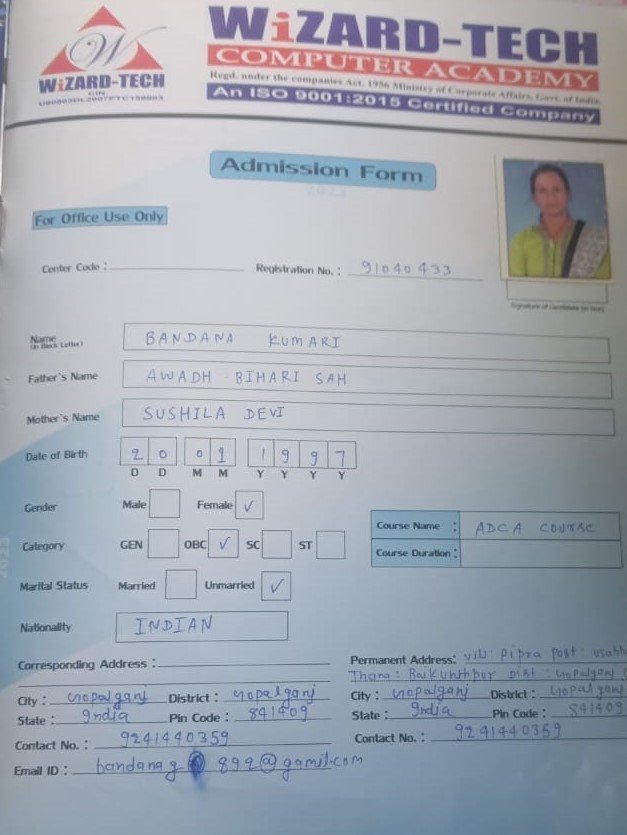 WiZARD-TECH
COMPUTER ACADEMY
Regd. under the companies Act, 1956 Ministry of Corporate Affairs, Govt. of India.
An ISO 9001:2015 Certified Company
W
WiZARD-TECH
CIN.
Admission Form
2023
For Office Use Only
Center Code :
Registration No. : 91040433
Signature of Candidate
Name (In Block Letter) BANDANA KUMARI
Father's Name AWADH BIHARI SAH
Mother's Name SUSHILA DEVI
Date of Birth 20 01 1997
D D M M Y Y Y Y
Gender Male Female ✓
Category GEN OBC ✓ SC ST
Course Name : ADCA COURSE
Course Duration :
Marital Status Married Unmarried ✓
Nationality INDIAN
Corresponding Address :
City : Gopalganj District : Gopalganj
State : India Pin Code : 841409
Contact No. : 9241440359
Email ID : bandana 892@gamil.com
Permanent Address: Vill: Pipra Post:
Thana: Baikunthpur Dist: Gopalganj
City : Gopalganj District : Gopalganj
State : India Pin Code : 841409
Contact No. : 9241440359
2023